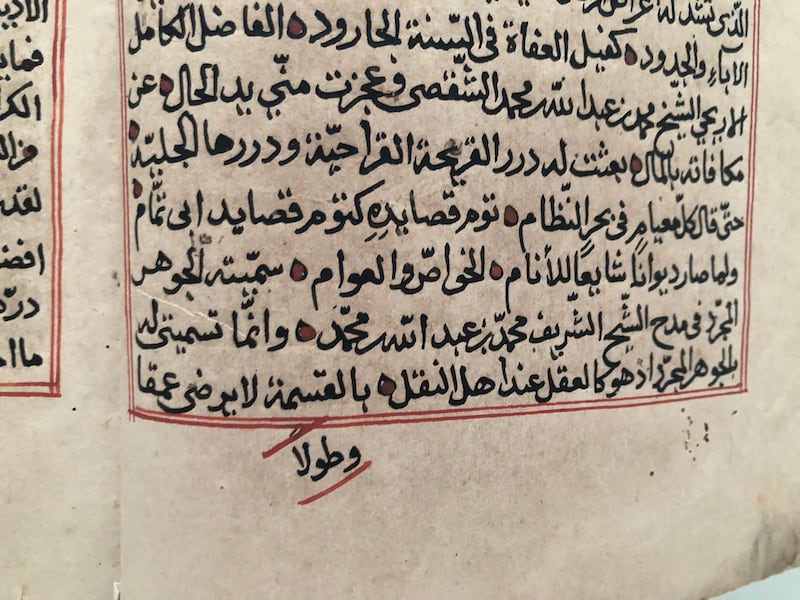 الذي تشد له
الآباء والجدود كفيل العفاة في السنة الحارود الفاضل الكامل
الاريحي الشيخ محمد بن عبد الله بن محمد الشقصي وعجزت مني يد الحال عن
مكافاته بالمال بعثت له درر القريحة القراحيّة ودررها الجلبيّة
حتى قال كل معيام في بحر النّظام تؤم قصايدِهِ كتؤم قصايد ابى تمّام
ولما صار ديوانًا شايعًا للأنام للخواصّ والعوام سمّيته الجوهر
المجرّد في مدح الشّيخ الشّريف محمّد بن عبد الله بن محمّد وانّما تسميتى له
بالجوهر المجرّد اذ هو كالعقل عند اهل النقل بالقسمة لا يرضى عمقا
وطولًا
الكرا
لقده
افضا
درّة
ما اح